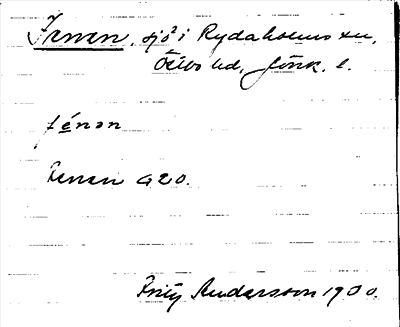 Fenen, sjö i Rydaholms sn,
Östbo hd, Jönk. l.
fénən
Fenen G20.
Fritz Andersson 1900.